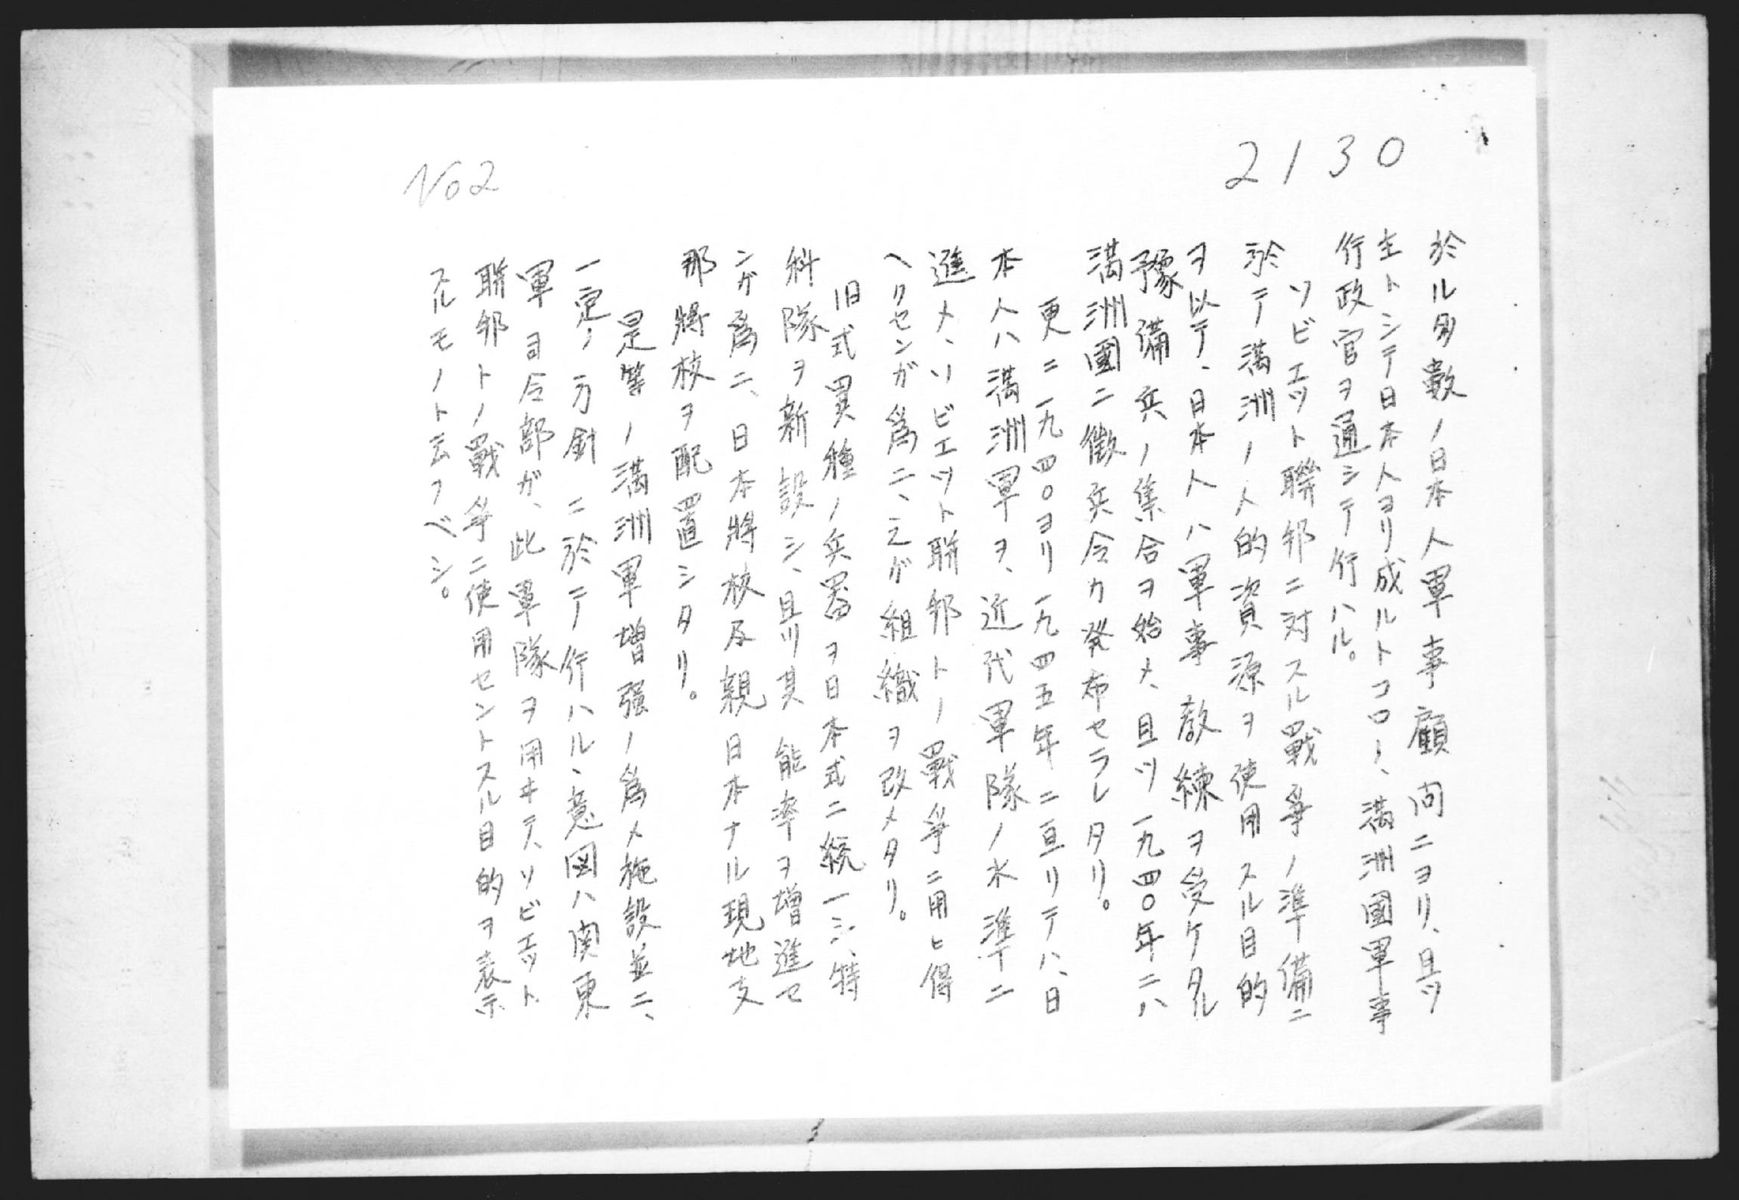 2130
No2
於ル多數ノ日本人軍事顧問ニヨリ、且ツ
主トシテ日本人ヨリ成ルトコロノ、満洲國軍事
行政官ヲ通シテ行ハル。
ソビエット聯邦ニ対スル戰爭ノ準備ニ
於テ満洲ノ人的資源ヲ使用スル目的
ヲ以テ、日本人ハ軍事教練ヲ受ケタル
豫備兵ノ集合ヲ始メ、且ツ一九四〇年ニハ
満洲國ニ徴兵令カ発布セラレタリ。
更ニ一九四〇ヨリ一九四五年ニ亘リテハ、日
本人ハ満洲軍ヲ、近代軍隊ノ水準ニ
進メ、ソビエット聯邦トノ戰爭ニ用ヒ得
ヘクセンガ爲ニ、之ガ組織ヲ改メタリ。
旧式異種ノ兵器ヲ日本式ニ統一シ、特
科隊ヲ新設シ、且ツ其能率ヲ増進セ
ンガ爲ニ、日本將校及親日本ナル現地支
那將校ヲ配置シタリ。
是等ノ満洲軍増强ノ爲メ施設並ニ、
一定ノ方針ニ於テ行ハル、意図ハ関東
軍司令部ガ、此軍隊ヲ用ヰテ、ソビエット
聯邦トノ戰爭ニ使用セントスル目的ヲ表示
スルモノト云フベシ。